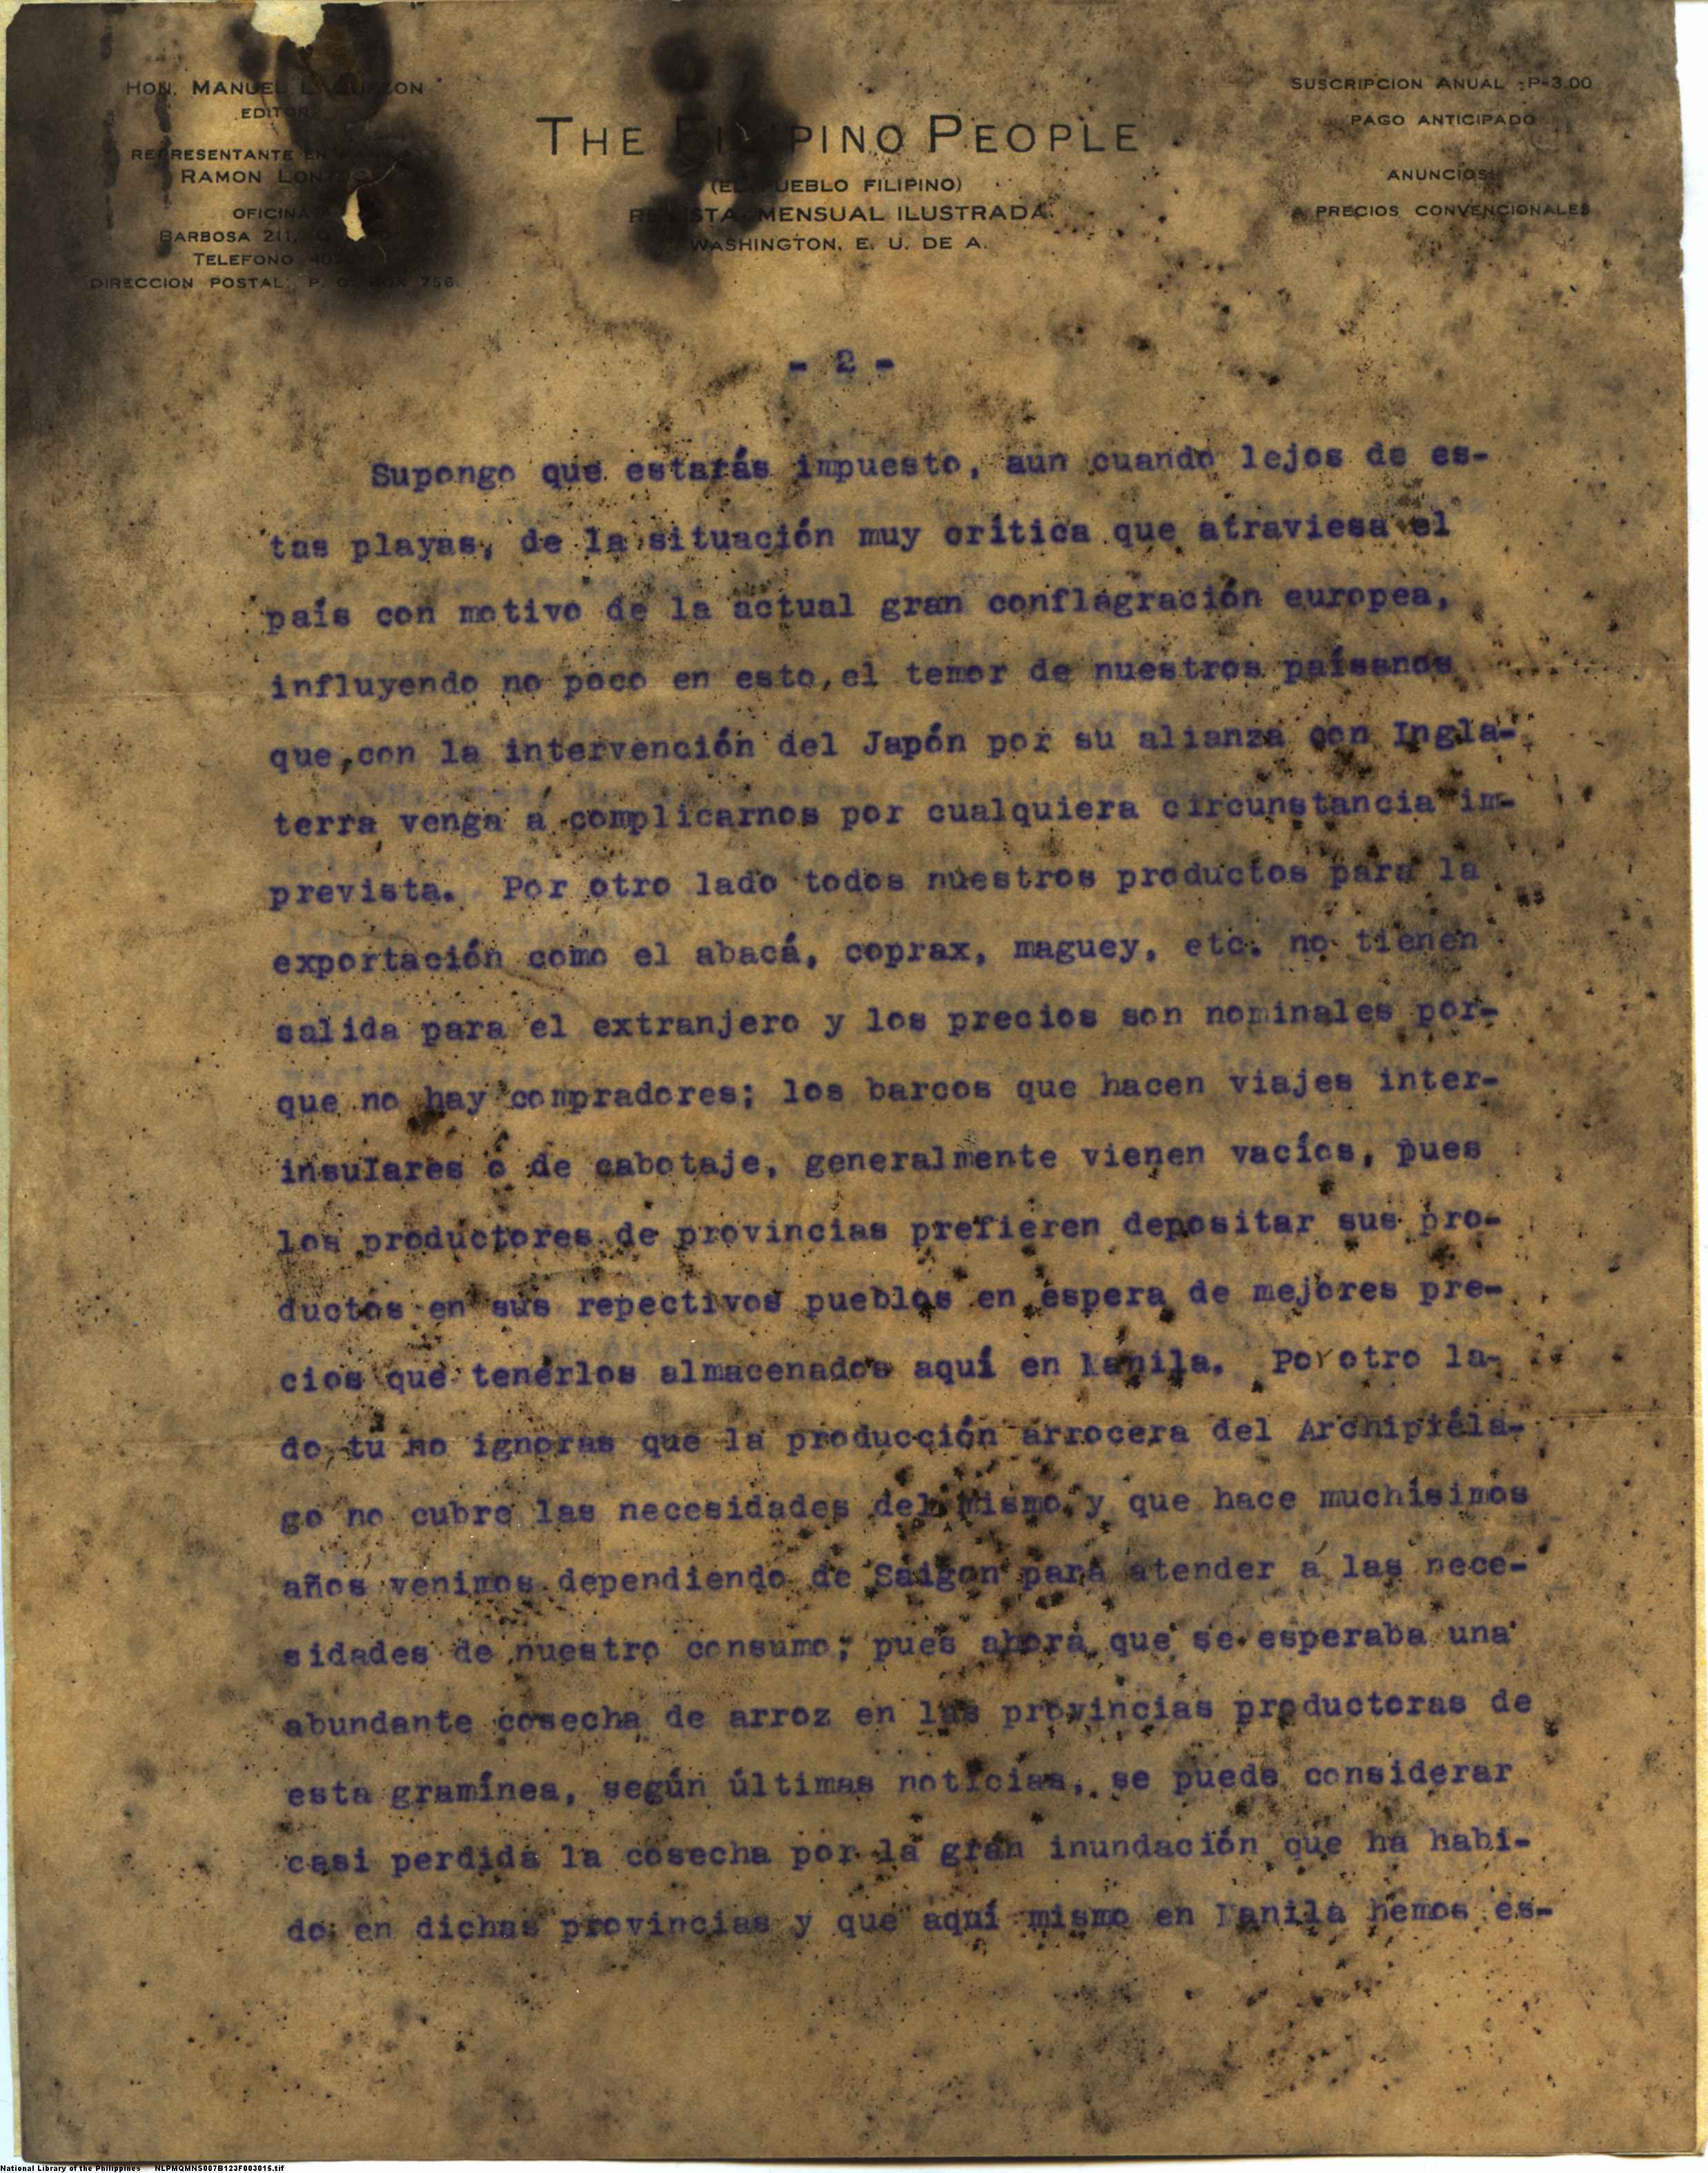 HON. MANUEL L. QUEZON
EDITOR
REPRESENTANTE EN
RAMON
OFICINA
BARBOSA 211,
TELEFONO
DIRECCION POSTAL: P. O. BOX 756
THE FILIPINO PEOPLE
(EL PUEBLO FILIPINO)
REVISTA MENSUAL ILUSTRADA
WASHINGTON, E. U. DE A.
SUSCRIPCION ANUAL P-3.00
PAGO ANTICIPADO
ANUNCIOS
A PRECIOS CONVENCIONALES
- 2 -
Supongo que estarás impuesto, aun cuando lejos de es-
tas playas, de la situación muy crítica que atraviesa el
país con motivo de la actual gran conflagración europea,
influyendo no poco en esto,el temor de nuestros paísanos
que,con la intervención del Japón por su alianza con Ingla-
terra venga a complicarnos por cualquiera circunstancia im-
prevista. Por otro lado todos nuestros productos para la
exportación como el abacá, coprax, maguey, etc. no tienen
salida para el extranjero y los precios son nominales por-
que no hay compradores; los barcos que hacen viajes inter-
insulares ó de cabotaje, generalmente vienen vacíos, pues
los productores de provincias prefieren depositar sus pro-
ductos en sus repectivos pueblos en espera de mejores pre-
cios que tenerlos almacenados aquí en Manila. Por otro la-
do, tú no ignoras que la producción arrocera del Archipiéla-
go no cubre las necesidades del mismo y que hace muchísimos
años venimos dependiendo de Saigon para atender á las nece-
sidades de nuestro consumo; pues ahora que se esperaba una
abundante cosecha de arroz en las provincias productoras de
esta gramínea, según últimas noticias, se puede considerar
casi perdida la cosecha por la gran inundación que ha habi-
do en dichas provincias y que aquí mismo en Manila hemos es-
National Library of the Philippines NLPMQMNS007B123F003015.tif